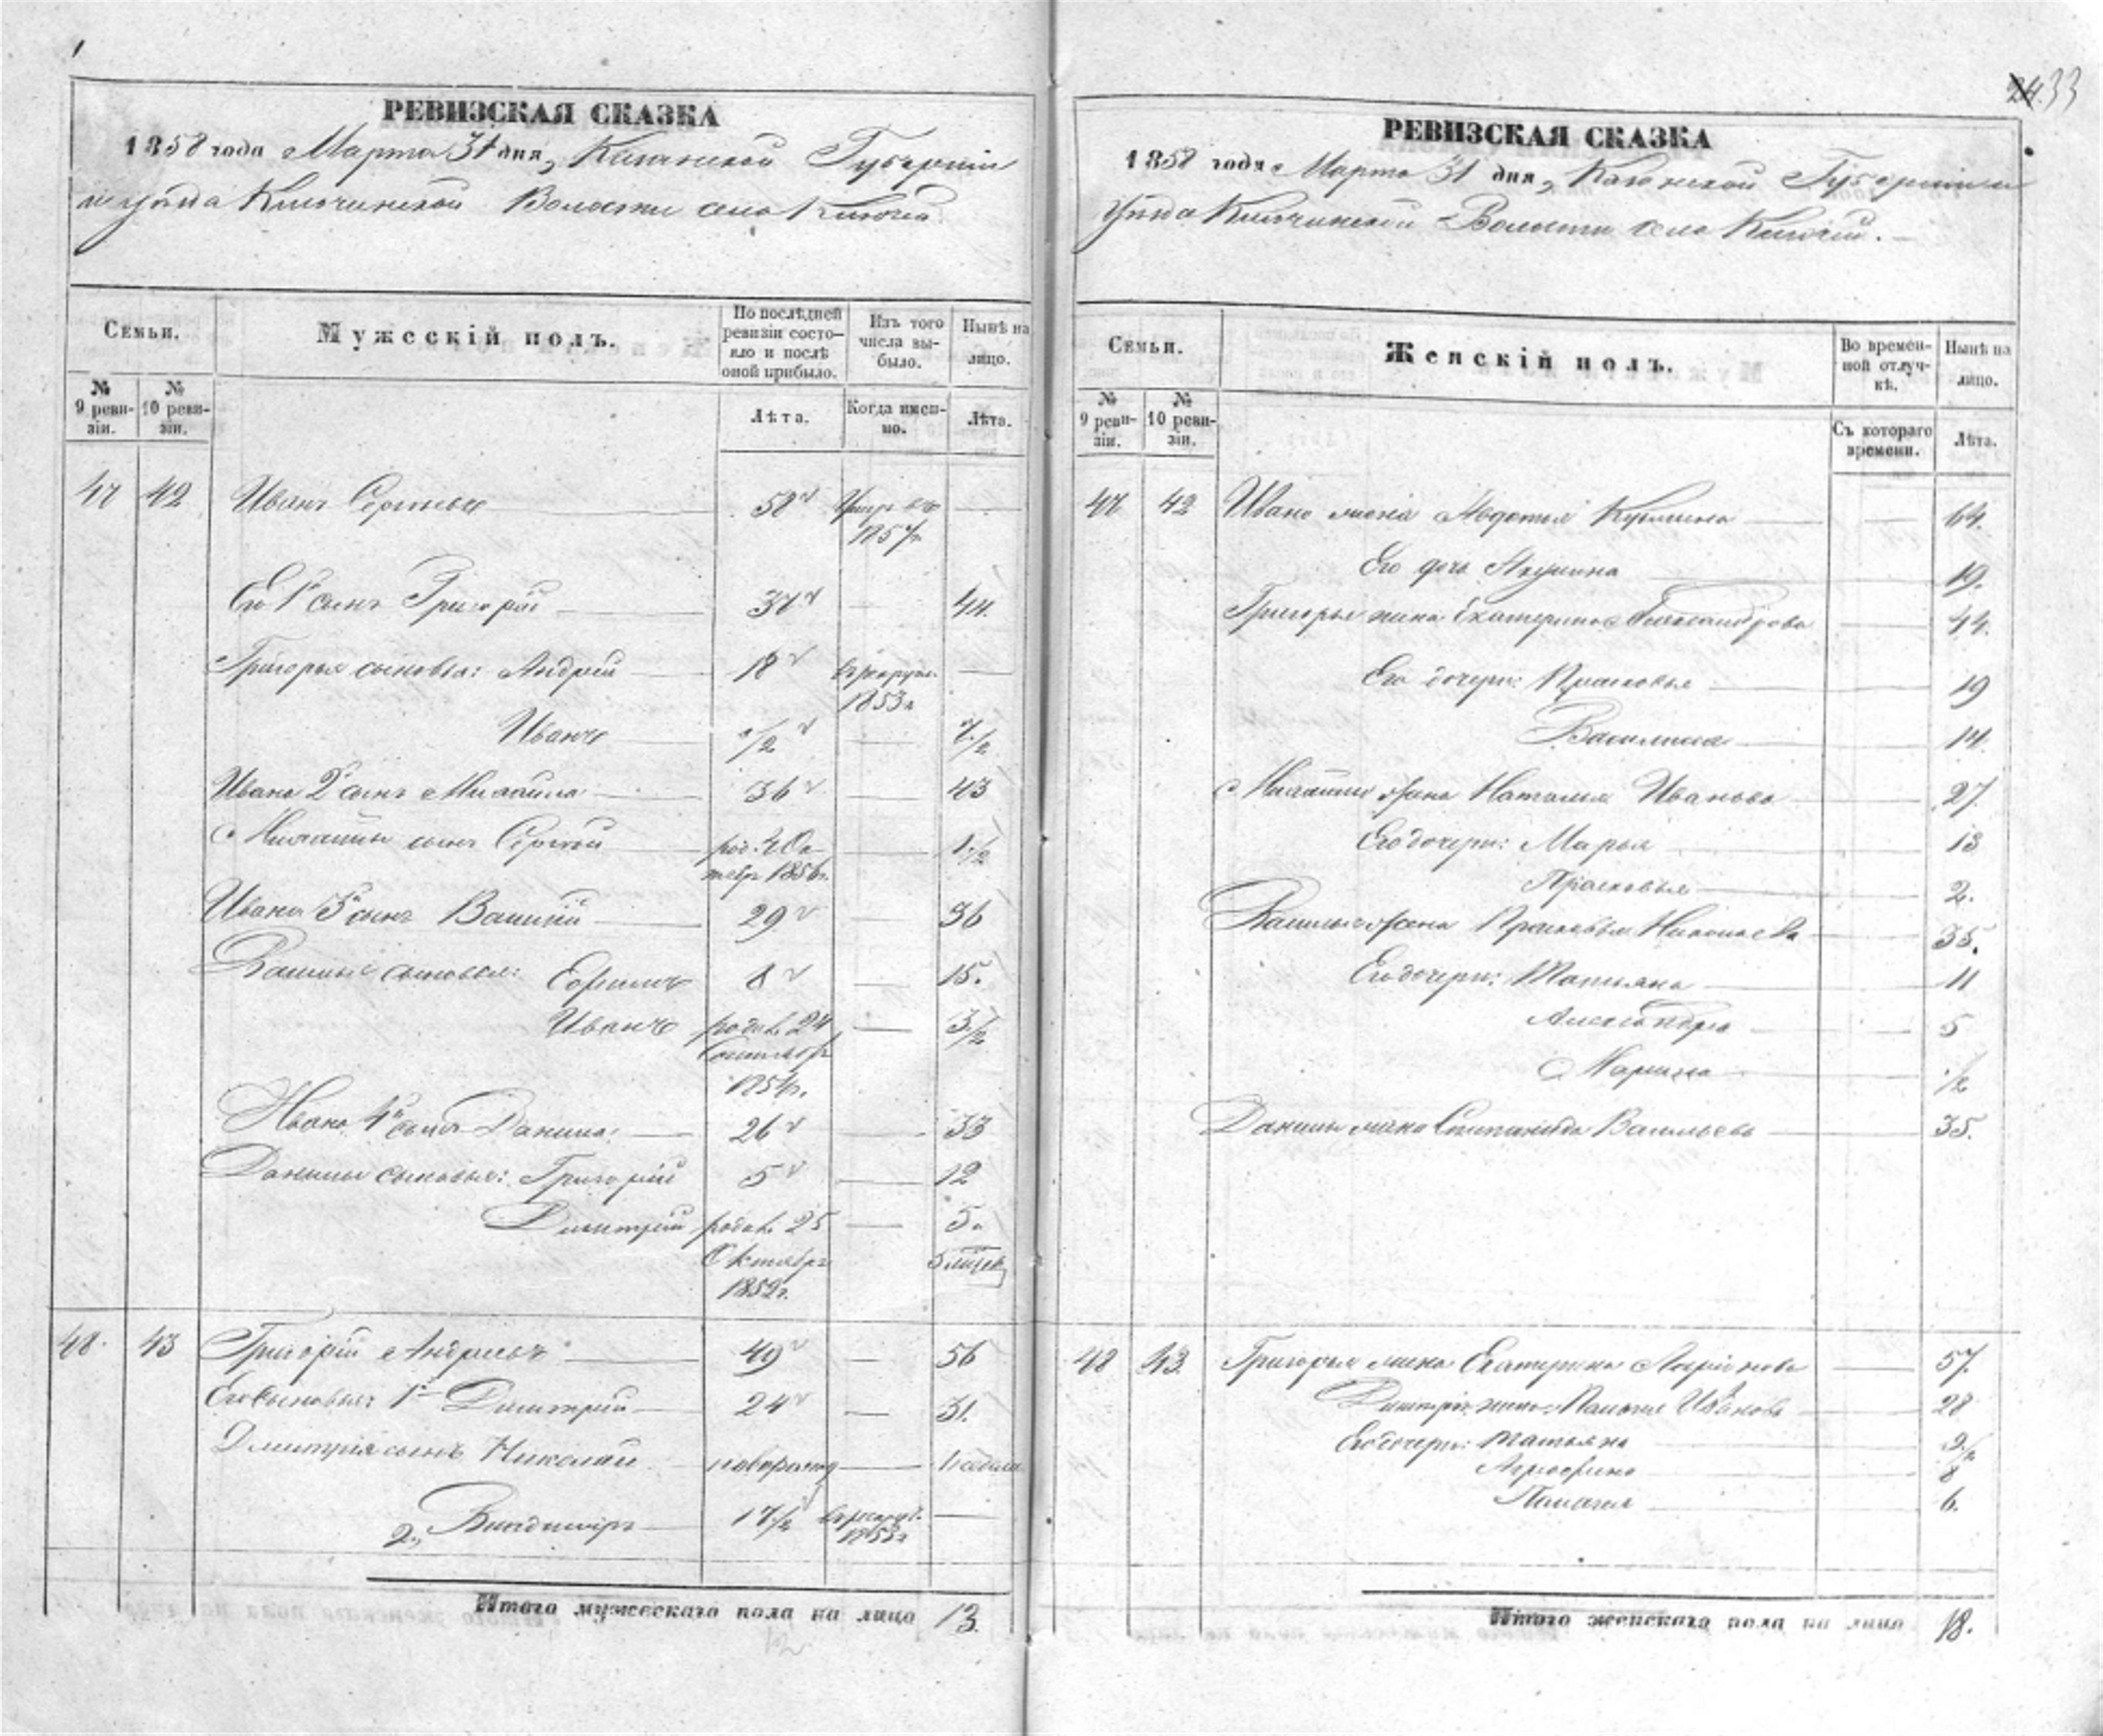 24. 33
РЕВИЗСКАЯ СКАЗКА
1858 года Марта 31 дня, Казанской Губерніи
уѣзда Ключинской Волости села Ключей
Семьи.
Мужескій полъ.
По послѣдней ревизіи состо-
яло и послѣ оной прибыло.
Изъ того числа вы-
было.
Нынѣ на лицо.
№ 9 реви-
зіи.
№ 10 реви-
зіи.
Лѣта.
Когда имен-
но.
Лѣта.
47 42 Иванъ Сергѣевъ 58 Умеръ въ
1857г.
Его 1й сынъ Григорій 37 44.
Григорья сыновья: Андрей 18 в рекруты
1853г
Иванъ 1/2 7 1/2
Ивана 2й сынъ Михайла 36 43
Михайлы сынъ Сергѣй род. Ок
тябр 1856г. 1 1/2
Ивана 3й сынъ Василій 29 36
Василья сыновья: Ефимъ 8 15.
Иванъ родил. 24 3 1/2
Сентября
1854г.
Ивана 4й сынъ Данила 26 33
Данилы сыновья: Григорій 5 12
Дмитрій родил. 25 5.
Октября 5 мѣсяц
1852г.
48. 43 Григорій Андреевъ 49 56
Его сыновья 1й Дмитрій 24 31.
Дмитрія сынъ Николай новорожд 1 недели
2й Владиміръ 17 1/2 в рекрут.
1853г
Итого мужескаго пола на лицо 13.
РЕВИЗСКАЯ СКАЗКА
1858 года Марта 31 дня, Казанской Губерніи
Уѣзда Ключинской Волости села Ключей.
Семьи.
Женскій полъ.
Во времен-
ной отлуч-
кѣ.
Нынѣ на лицо.
№ 9 реви-
зіи.
№ 10 реви-
зіи.
Съ котораго времени.
Лѣта.
47 42 Ивана жена Авдотья Кузмина 64.
Его дочь Акулина 19.
Григорья жена Екатерина Александрова 44.
Его дочери: Прасковья 19
Василиса 14.
Михайлы жена Наталья Иванова 27.
Его дочери: Марья 13
Прасковья 2.
Василья жена Прасковья Николаева 35.
Его дочери: Татьяна 11
Александра 5
Марина 1/2
Данилы жена Степанида Васильева 35.
48 43. Григорья жена Екатерина 57.
Дмитрія жена Палагея Иванова 28
Его дочери: Татьяна 9 1/2
Агрофина 8
Палагея 6.
Итого женскаго пола на лицо 18.